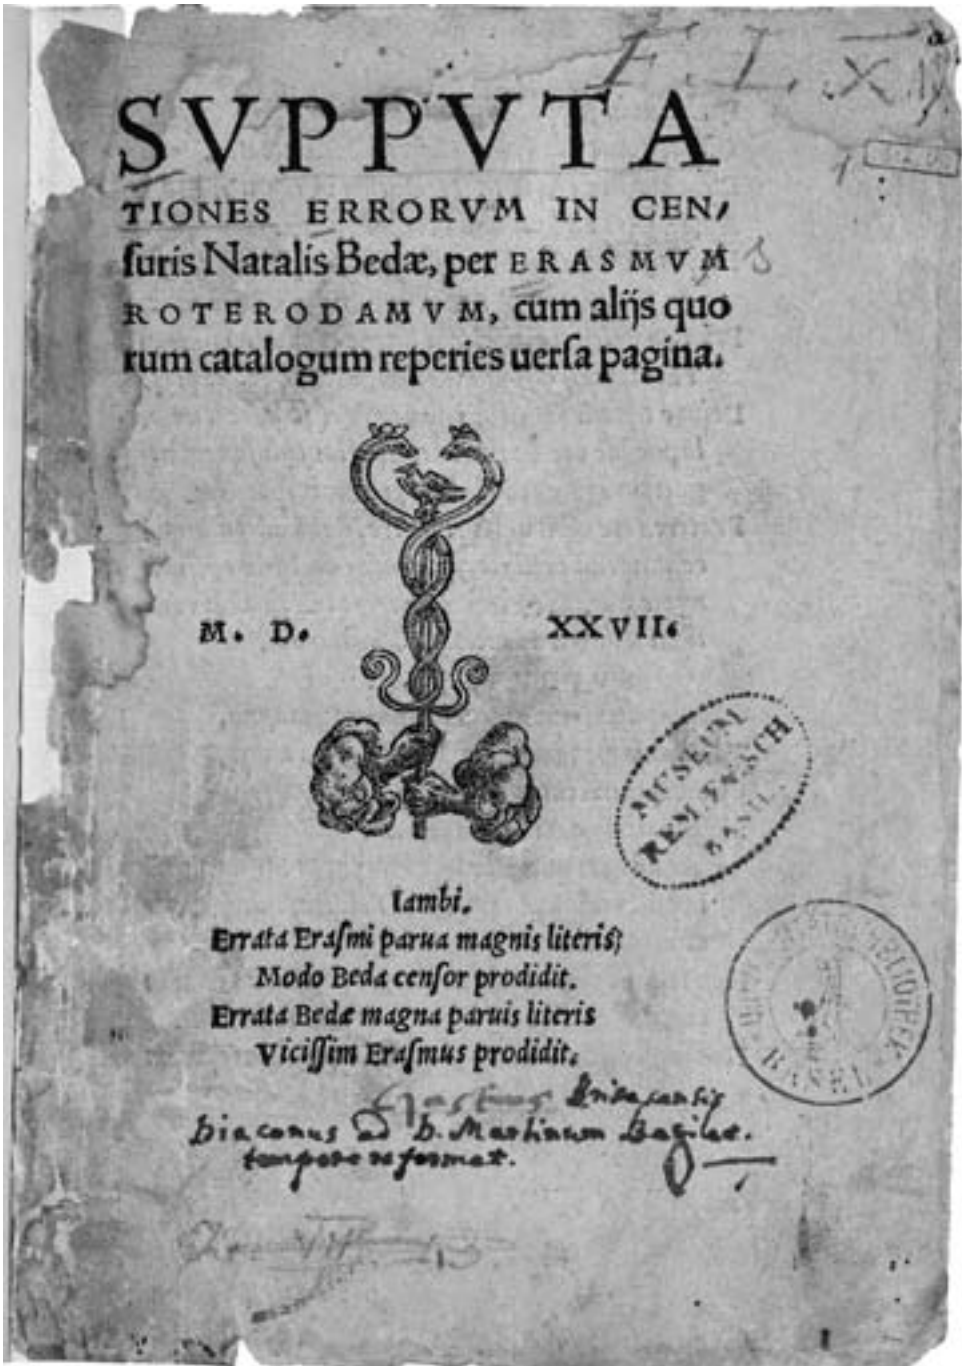 F. L. X.
SVPPVTA
TIONES ERRORVM IN CEN,
ſuris Natalis Bedæ, per ERASMVM
ROTERODAMVM, cum alijs quo
rum catalogum reperies uerſa pagina.
M. D. XXVII.
MUSEUM
BASIL.
Iambi.
Errata Eraſmi parua magnis literis;
Modo Beda cenſor prodidit.
Errata Bedæ magna paruis literis
Viciſſim Eraſmus prodidit.
BASEL
Brisacensis
Diaconus ad D. Martinum Basileæ.
tempore reformat.